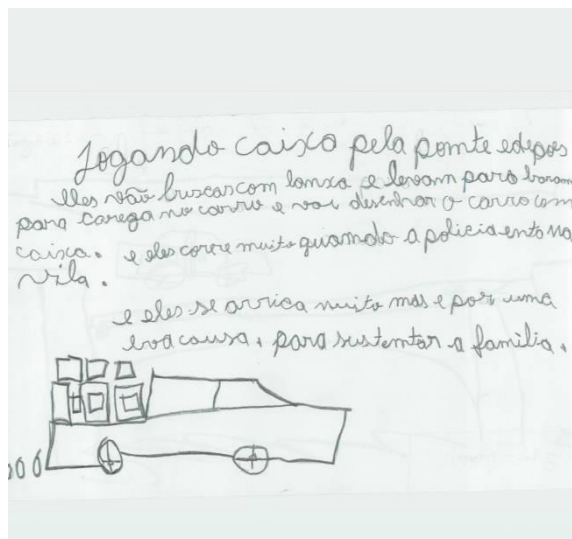 Jogando caixo pela pomte edepois
elles vão buscas com lanxa e levam para
para carega no carro e vai desenhar o carro com
caixa. e eles corre muito quamdo a policia ento na
vila.
e eles se arrica muito mas e por uma
causa, para sustemtar a familia.